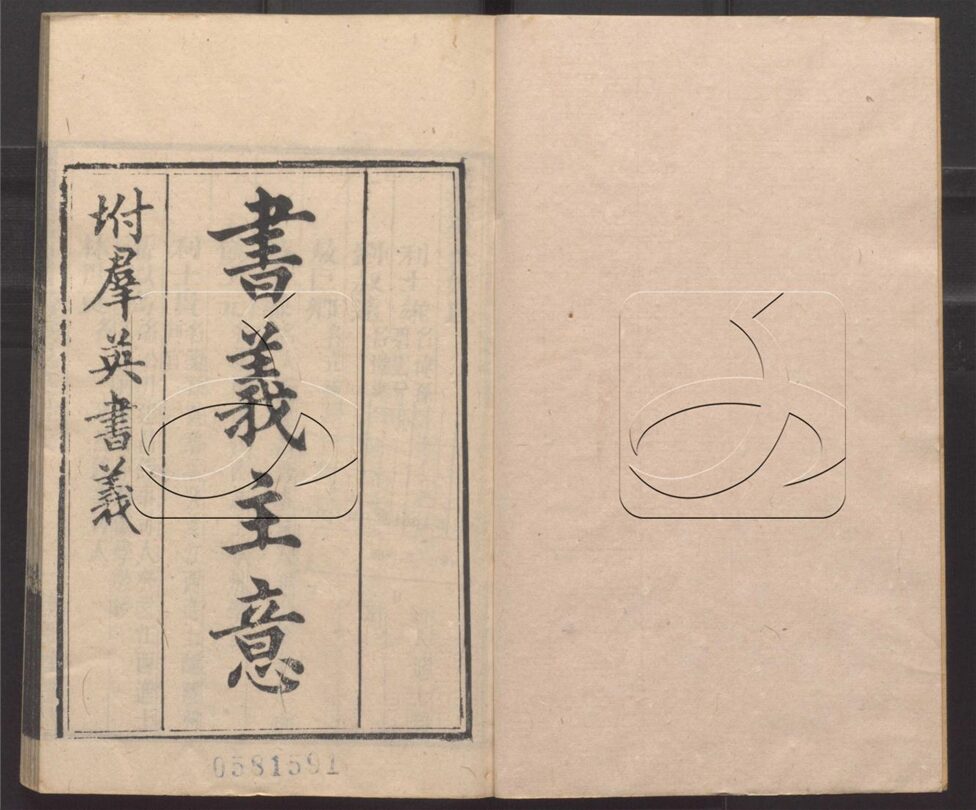 書義主意
坿羣英書義
0581591